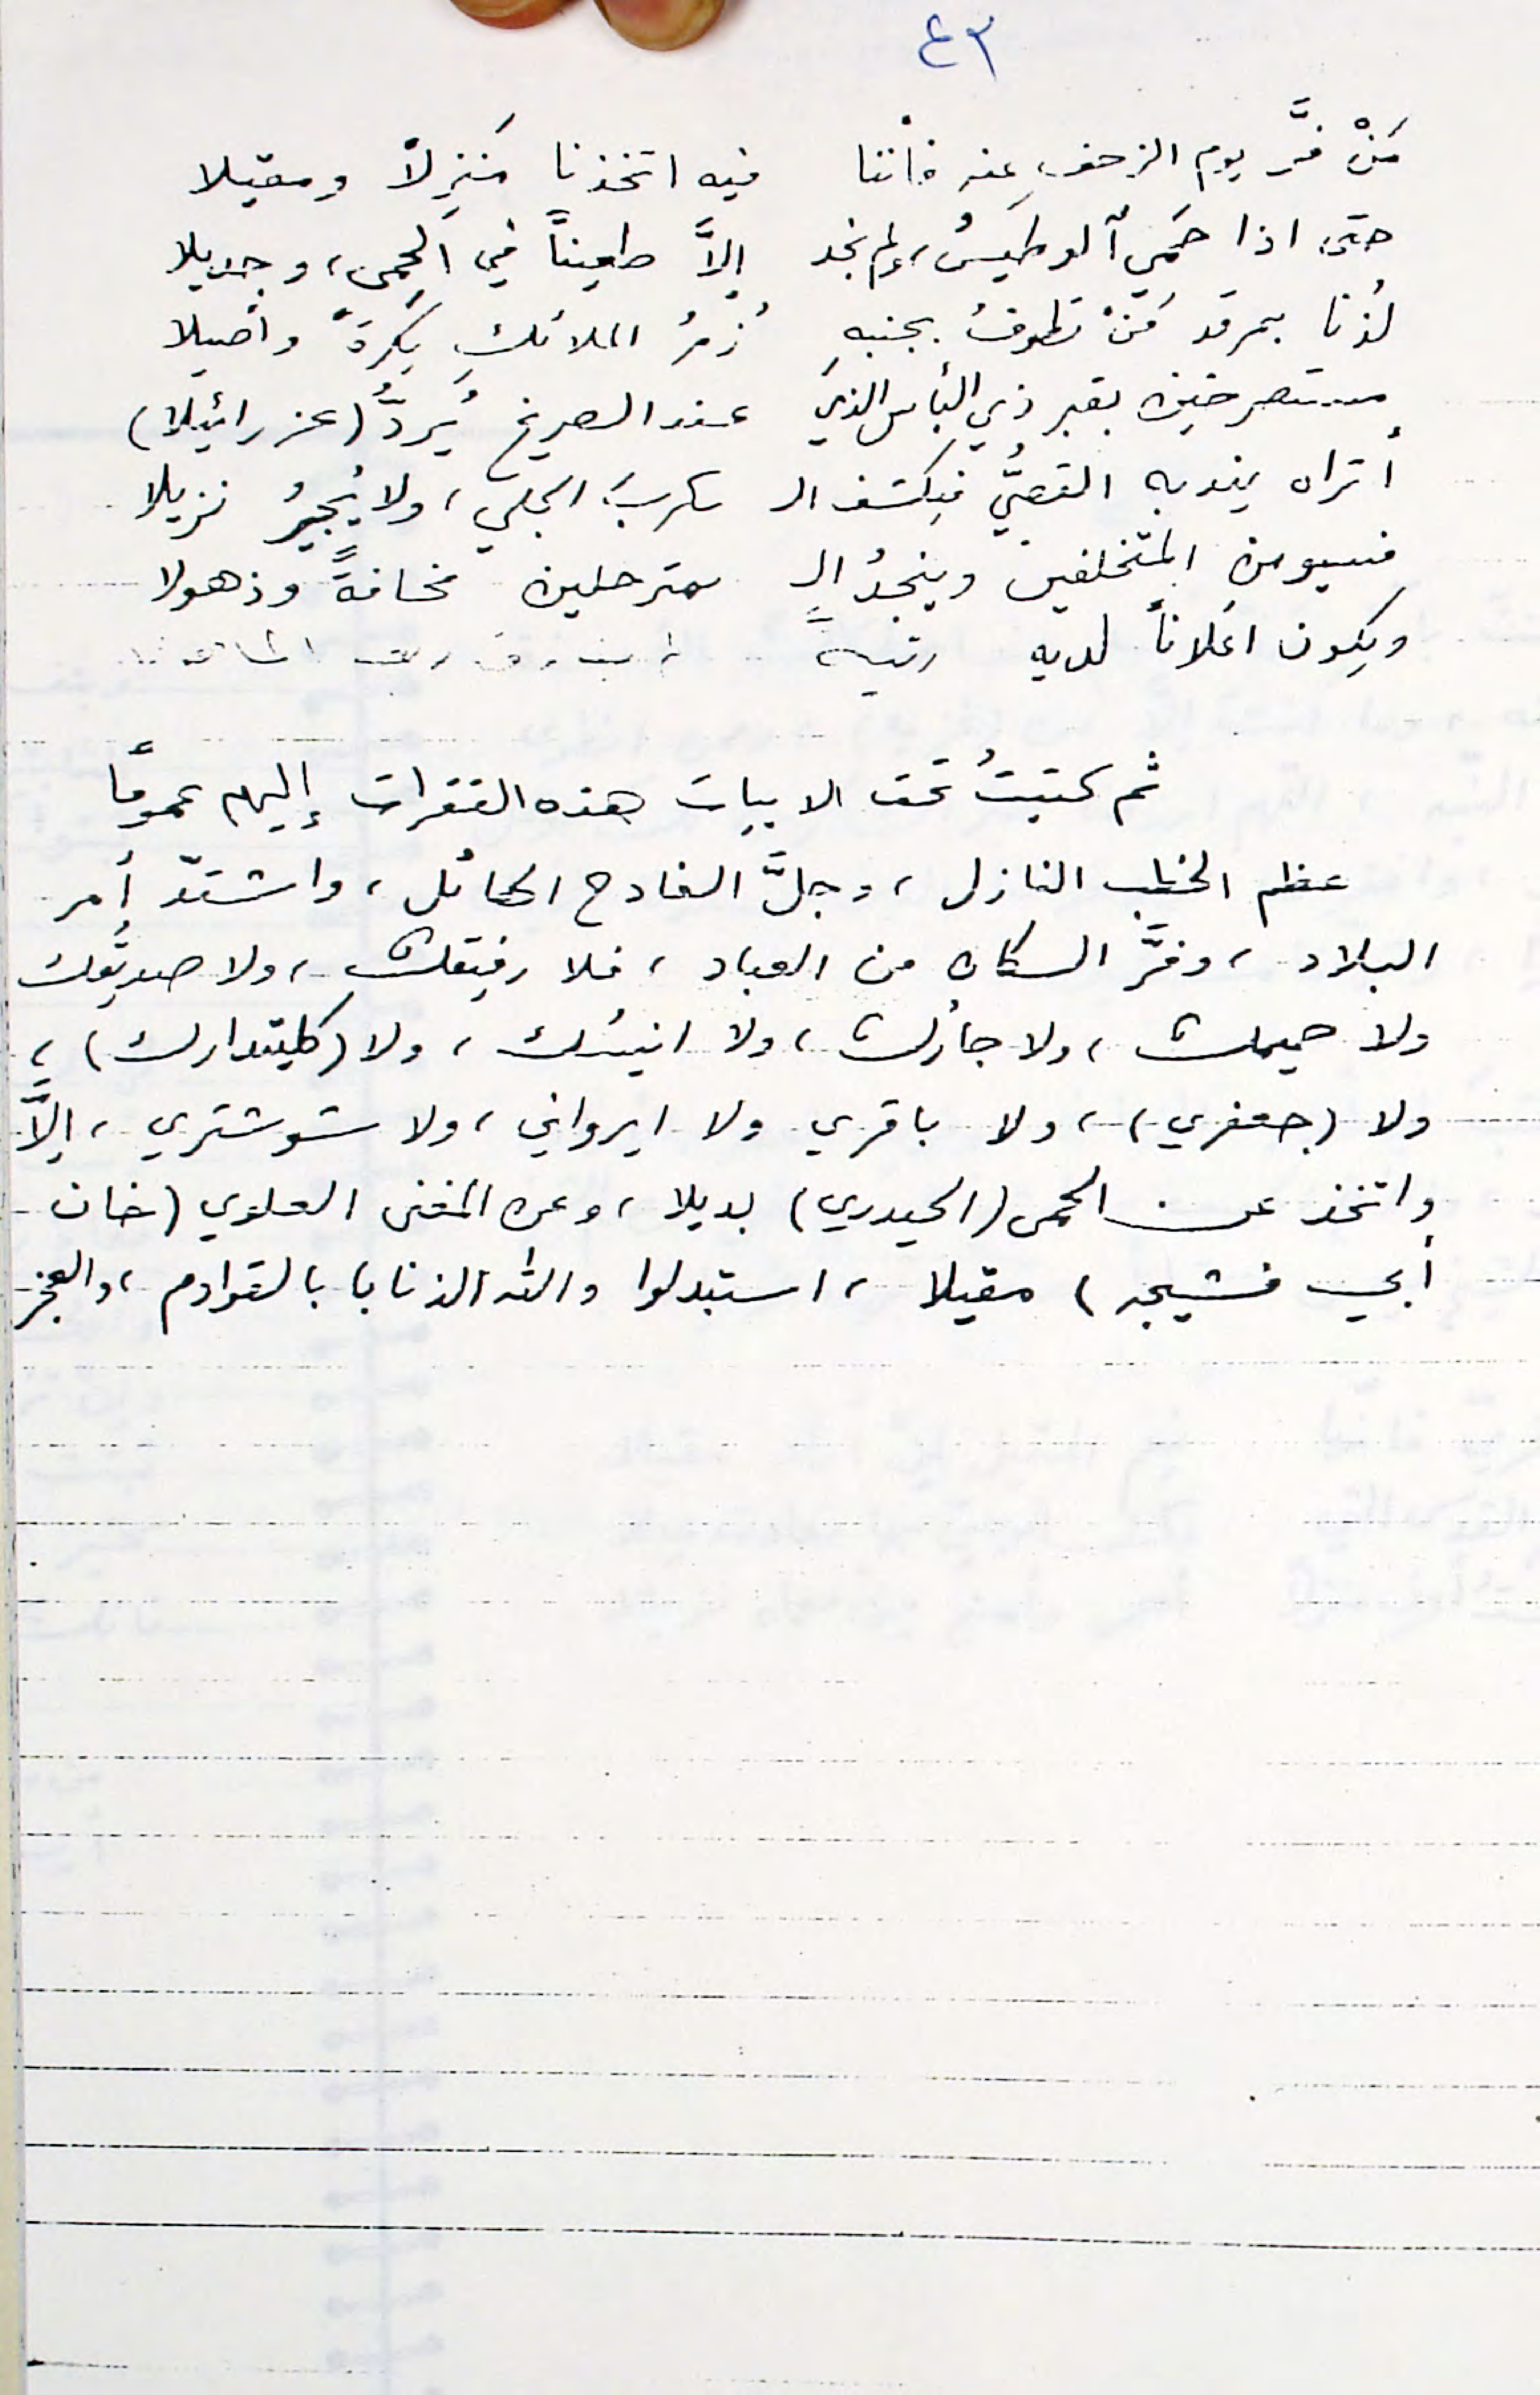 ٤٣
مَنْ فرَّ يوم الزحفِ عنه فأننا فيه اتخذنا مَنزِلاً ومقيلا
حتى اذا حَمِيَ آلوطيسُ، ولم نجد إلاَّ طعيناً في الحِمى، وجديلا
لُذنا بمرقد مَنْ تطوفُ بجنبهِ زُمرُ الملائكِ بُكرةً وأصيلا
مستصرخين بقبر ذي البأس الذي عند الصريخ يَردُّ (عزرائيلا)
أتراه يندبه القصيُّ فيكشف الـ ـكربَ الجلي، ولا يُجيرُ نزيلا
فسيومن المتخلفين وينجدُ الـ ـمترحلين مخافةً وذهولا
ويكون اعلاناً لديه رتبةً
ثم كتبتُ تحت الابيات هذه الفقرات إليهم عموماً
عظم الخطب النازل، وجلَّ الفادح الهائل، واشتدّ أمر
البلاد، وفرَّ السكان من العباد، فلا رفيقك، ولا صديقك
ولا حميمك، ولا جارك، ولا انيسك، ولا (كليتدارك)،
ولا (جعفري)، ولا باقري ولا ايرواني، ولا شوشتري، إلاَّ
واتخذ عن الحمى (الحيدري) بديلا، وعن المغنى العلوي (خان
أبي فشيجه) مقيلا، استبدلوا والله الذنابا بالقوادم، والعجز